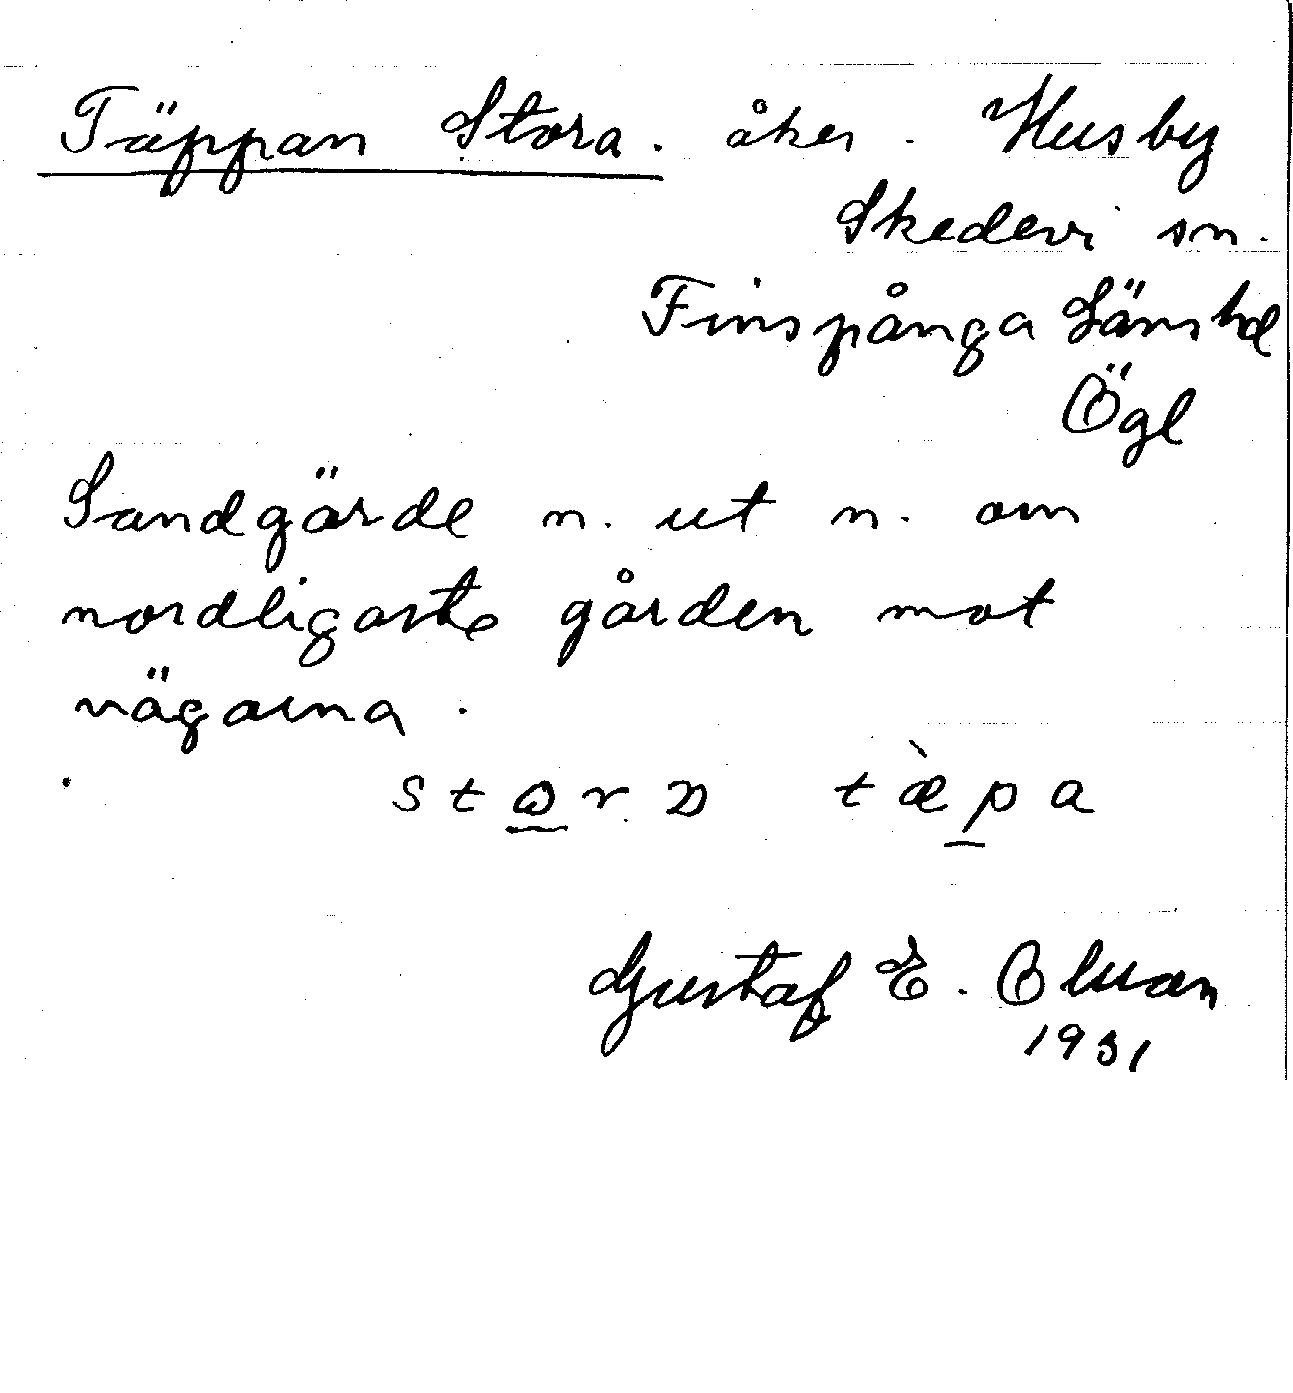 Täppan Stora. åker. Husby
Skedevi sn.
Finspånga Läns hd
Ögl
Sandgärde n. ut n. om
nordligaste gården mot
vägarna.
tæ̀pa
Gustaf E. Olsson
1931